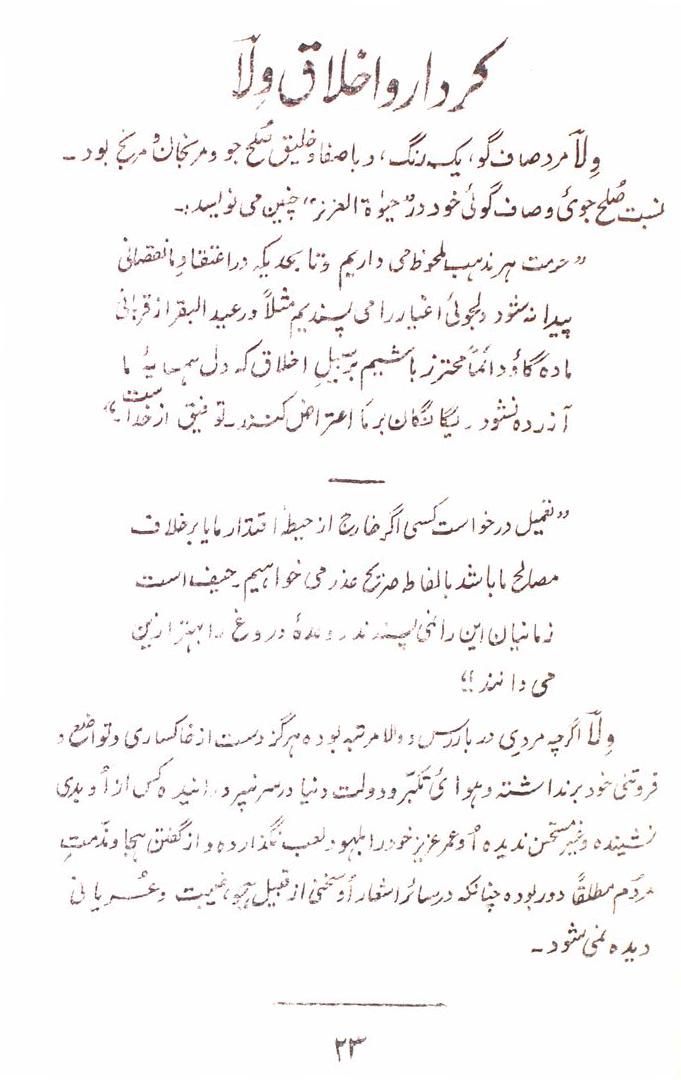 کردار و اخلاق وِلاؔ
وِلاؔ مرد صاف گو، یک رنگ، و باصفا و خلیق صُلح جو و مرنجان و مرنج بود ـ
نسبت صُلح جوئ و صاف گوئی خود در "حیوٰة العزیز" چنین می نویسد :ـ
"حرمت هر مذهب ملحوظ می داریم و تا بحدیکه در اعتقاد ما نقصانی
پیدا نه شود دلجوئی اغیار را می پسندیم مثلاً در عید البقر از قربانی
ماده گاؤ دائماً محترز باشیم بر سبیلِ اخلاق که دل همسایۂ ما
آزرده نشود ـ یگانگان بر ما اعتراض کنند ـ توفیق از خداست ـ"
"تعمیل درخواست کسی اگر خارج از حیطۂ اقتدار ما یا برخلاف
مصالح ما باشد بالفاظ صریح عذر می خواهیم ـ حیف است
زمانیان این را نمی پسندند و وعدۂ دروغ را بهتر ازین
می دانند !"
وِلاؔ اگرچه مردی دربار رس و والا مرتبه بوده هرگز دست از خاکساری و تواضع و
فروتنی خود برنداشته و هوائ تکبّر و دولت دنیا در سر نپرورانیده کس از اُو بدی
نشنیده و غیر مستحسن ندیده اُو عمر عزیز خود را بلهو و لعب نگذارده و از گفتن هجا و مذمتِ
مردُم مطلقاً دور بوده چنانکه در سائر اشعار اُو سخنی از قبیل هجو، غیبت و عُریانی
دیده نمی شود ـ
۲۳